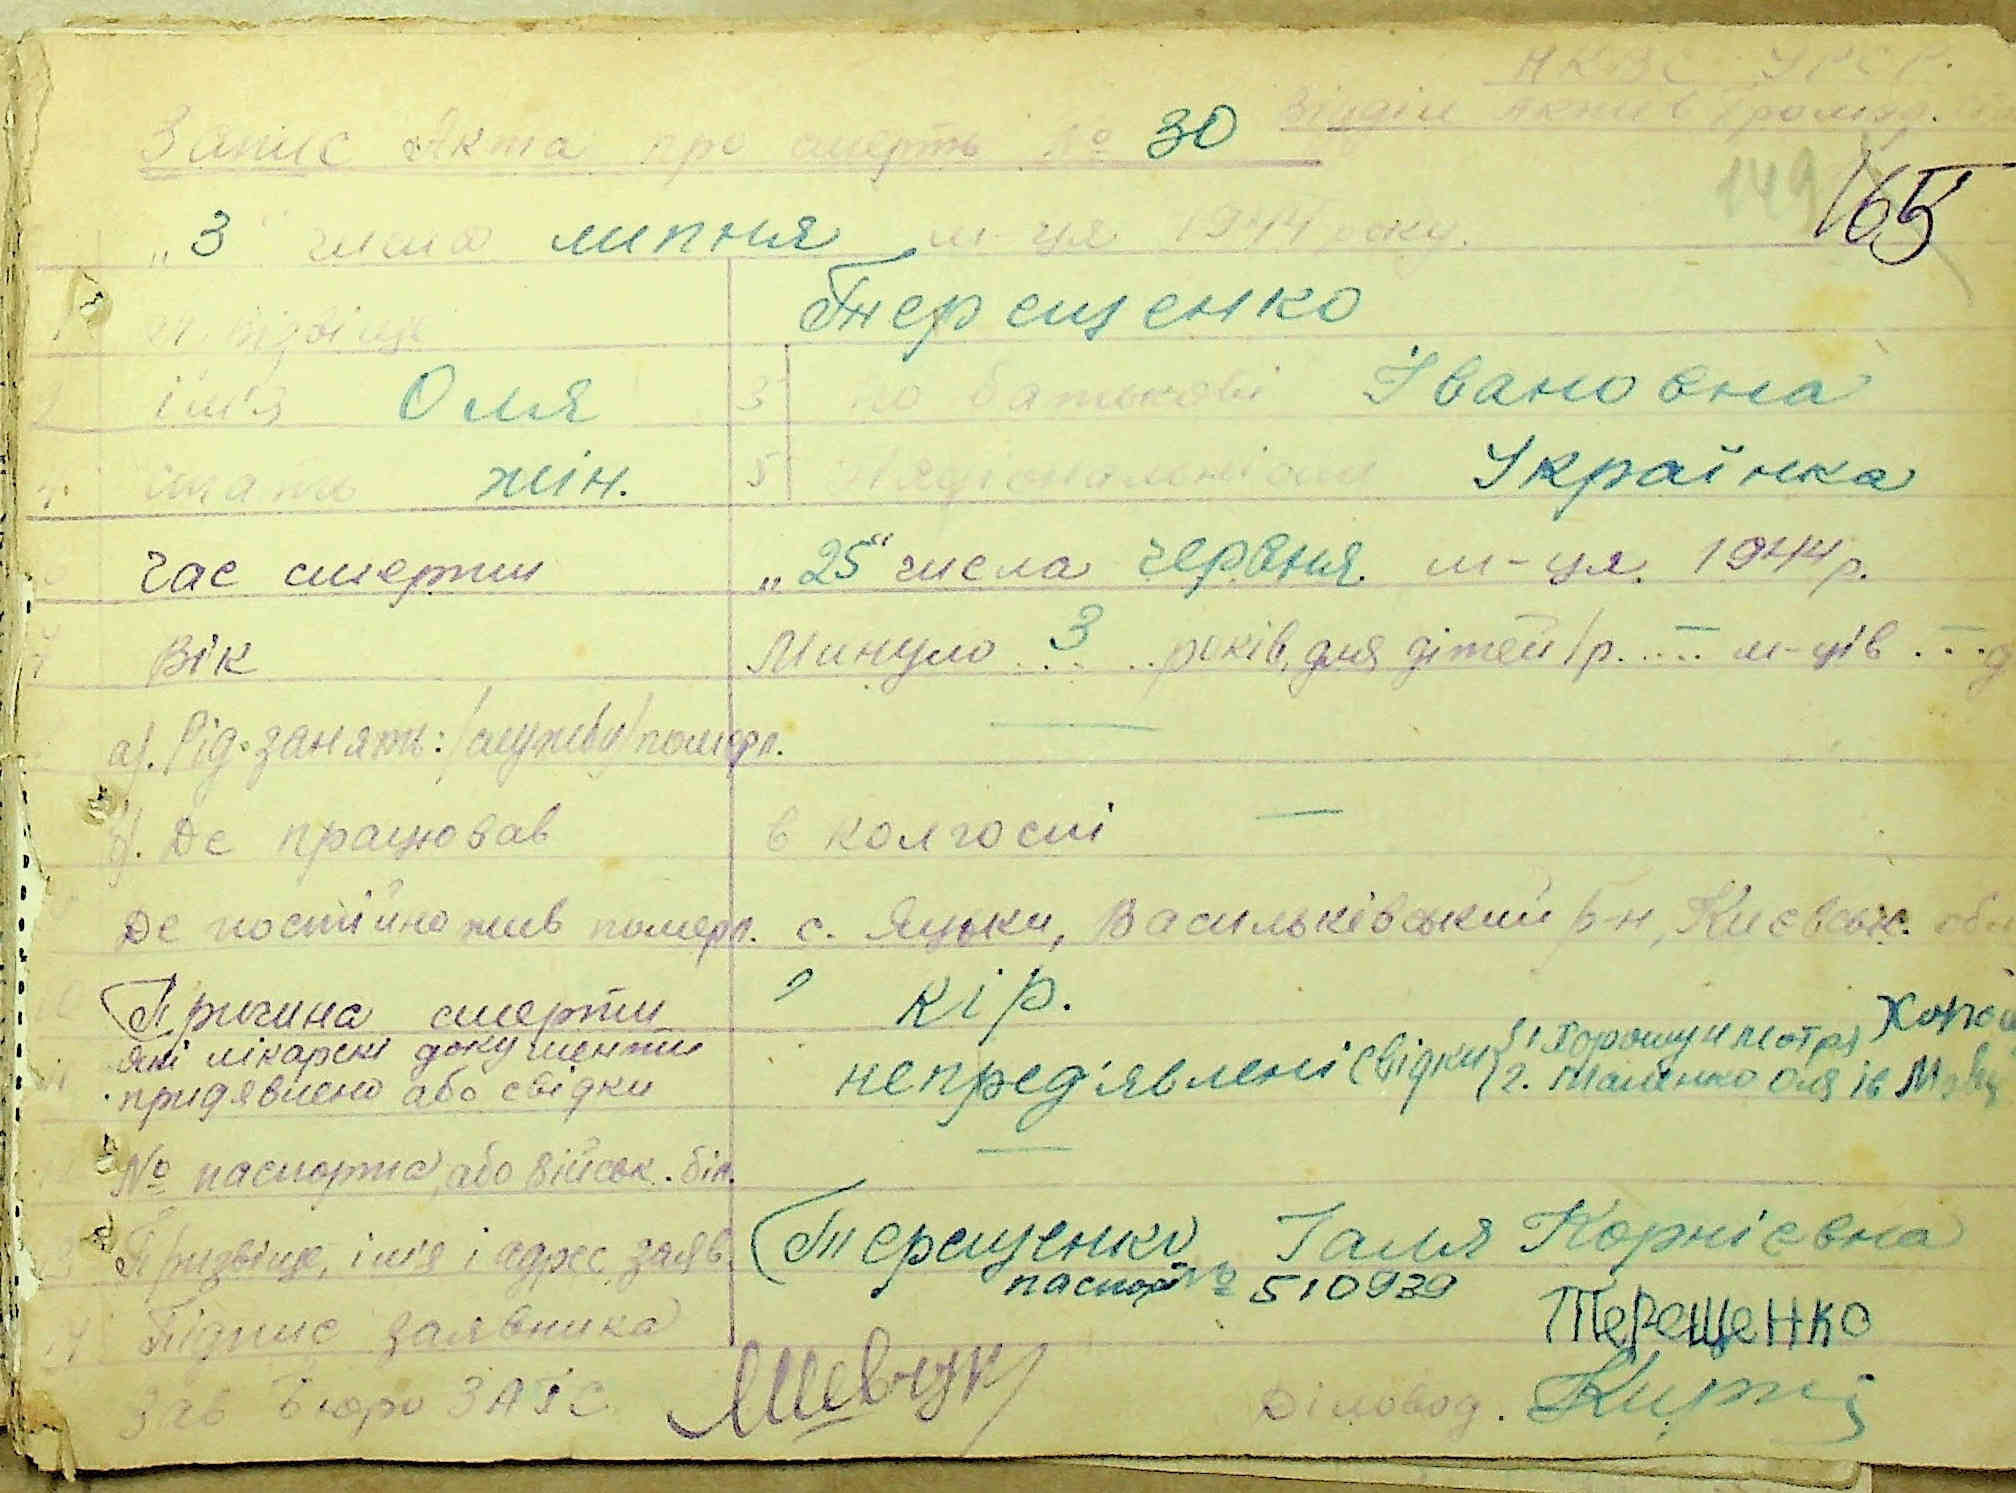 НКВС УРСР.
Відділ Актів Громад.
Запис Акта про смерть № 30
149 165
"3" числа липня м-ця 1944 року.
1 Прізвіще Терещенко
2 ім'я Оля 3 по батькові Івановна
4. стать жін. 5 Національність Українка
Час смерти "25" числа червня м-ця. 1944 р.
Вік Минуло 3 років, для дітей/р. — м-ців —
а). Рід занять: /службу/ померл. —
б). Де працював в колгоспі —
Де постійно жив померл. с. Яцьки, Васильківський р-н, Києвськ. обл
Причина смерти кір.
11 які лікарські документи
придявлено або свідки непред'явлені свідки 1 Хорошун Мотря
2. Оля Ів
№ паспорта, або військ. біл. —
13 Прізвіще, ім'я і адрес заяв. Терещенко Галя Корнієвна
паспор № 510939
14 Підпис заявника Терещенко
Зав Бюро ЗАГС Шевчук Діловод.